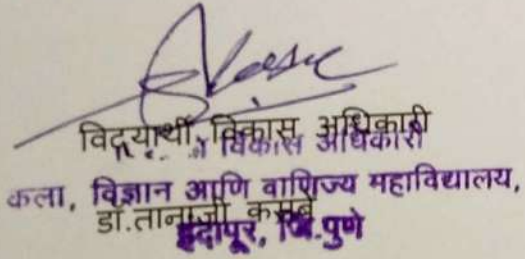 विद्यार्थी विकास अधिकारी
विकास अधिकारी
कला, विज्ञान आणि वाणिज्य महाविद्यालय,
डॉ.तानाजी कसबे
इंदापूर, जि.पुणे